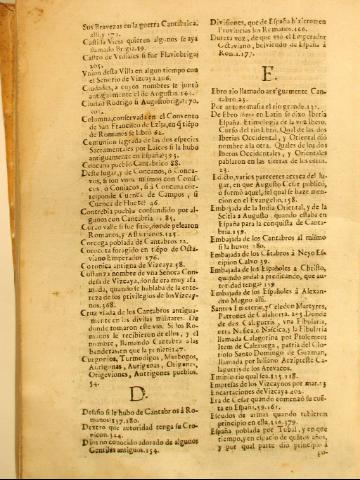 Sus Bravezas en la guerra Cantabrica,
alli, y 171.
Castilla Vieja quieren algunos se aya
llamado Brigia. 59.
Castro de Vrdiales si fue Flaviobriga
205.
Vnion desta Villa en algun tiempo con
el Señorio de Vizcaya 206.
Ciudades, a cuyos nombres se juntò
antiguamente el de Augusta
Ciudad Rodrigo si Augustobriga: 70,
Colomna, conservada en el Convento
de San Francisco de
de Romanos se librò 62.
Comunion sagrada de las dos especies
Sacramentales por Laicos si la hubo
antiguamente en España 393.
Concana pueblo Cantabrico 28.
Deste lugar, y de Concanos, ò Conca-
nos, si son vnos mismos con
cos, ò Coniacos, si à Concana cor-
responde Cuenca de Campos, si
Cuenca de Huete 46.
Contrebia pueblo confundido por al-
gunos con Cantabria 85.
Corio valle si fue sitio, donde pelearon
Romanos, y Asturianos 125.
Corocota foragido en tiempo de Octa-
viano Emperador 176.
Coronica antigua de Vizcaya 38.
nombre de vna Señora Con-
desa de Vizcaya, donde era muy afa-
mada, quando se hablaba de la ente-
reza de los privilegios de los Vizcay-
nos. 368.
Cruz vsada de los Cantabros antigua-
mente en las divisas militares 139.
de donde tomaron este vso. Si los Ro-
manos le recibieron dellos, y el
nombre, llamando Cantabra a las
banderas en que la ponian 147.
Curgonios, Turmodigos, Murbogos,
Autrigas, Aurigones, Origenes,
Origeviones, Autrigones pueblos.
54.
D.
Desafio si le hubo de Cantabros à Ro-
manos 157. 180.
Dextro que autoridad tenga su Cro-
nicon. 324.
Dios no conocido adorado de algunos
Gentiles antiguos. 154.
Divisiones, que de España hizieron en
Provincias los Romanos. 166.
Dureta voz, de que vsò el Emperador
Octaviano, bolviendo de España à
Roma. 177.
E.
Ebro rio llamado antiguamente Can-
tabro. 25.
Por antonomasia el rio grande. 137.
De Ebro Iber en Latin se dixo Iberia
España. Etimologia de vna Iberu.
Curso del rio Ebro. Qual de las dos
Iberias Occidental, y Oriental diò
nombre a la otra. Quales de los dos
Iberos Occidentales, y Orientales
poblaron en las tierras de los otros.
23.
Edicto, varios pareceres acerca del lu-
gar, en que Augusto Cesar publicò,
ò formò aquel, del qual se haze men-
cion en el Evangelio, 158.
Embajada de la India Oriental, y de la
Scitia à Augusto quando estaba en
España para la conquista de Canta-
bria. 158.
Embajada de los Cantabros al mismo
si la huvo 180.
Embajada de los Cantabro à
cipion Calvo 39.
Embajada de los Españoles a Christo,
quando andaba predicando, que au-
toridad tenga 159
Embajada de los Españoles à Alexan-
dro Magno alli.
Santos Emeterio, y Celedon Martyres,
Patrones de Calahorra. 253. Donde
de dos Calagurris, vna Fibularia,
otra Nasica, ò Nascica, y la Fibularia
llamada Calagorina por Ptolemeo:
Item de Calaruega, patria del Glo-
rioso Santo Domingo de Guzman,
llamada por Iuliano Arcipreste Ca-
lagurris de los Arevacos.
rio qual sea. 115. 118.
Empresas de los Vizcaynos por mar. 13
Encartaciones de Vizcaya 402.
Era de Cesar quando comenzò su cuen-
ta en España, 59. 161.
Escudos de armas quando tubieren
principio en ella, 226. 379.
España poblada por Tubal, y en que
tiempo, y en espacio de quantos años,
y por qual parte diò principio à